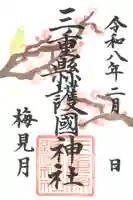 令和八年二月 日
三重縣護國神社
梅見月